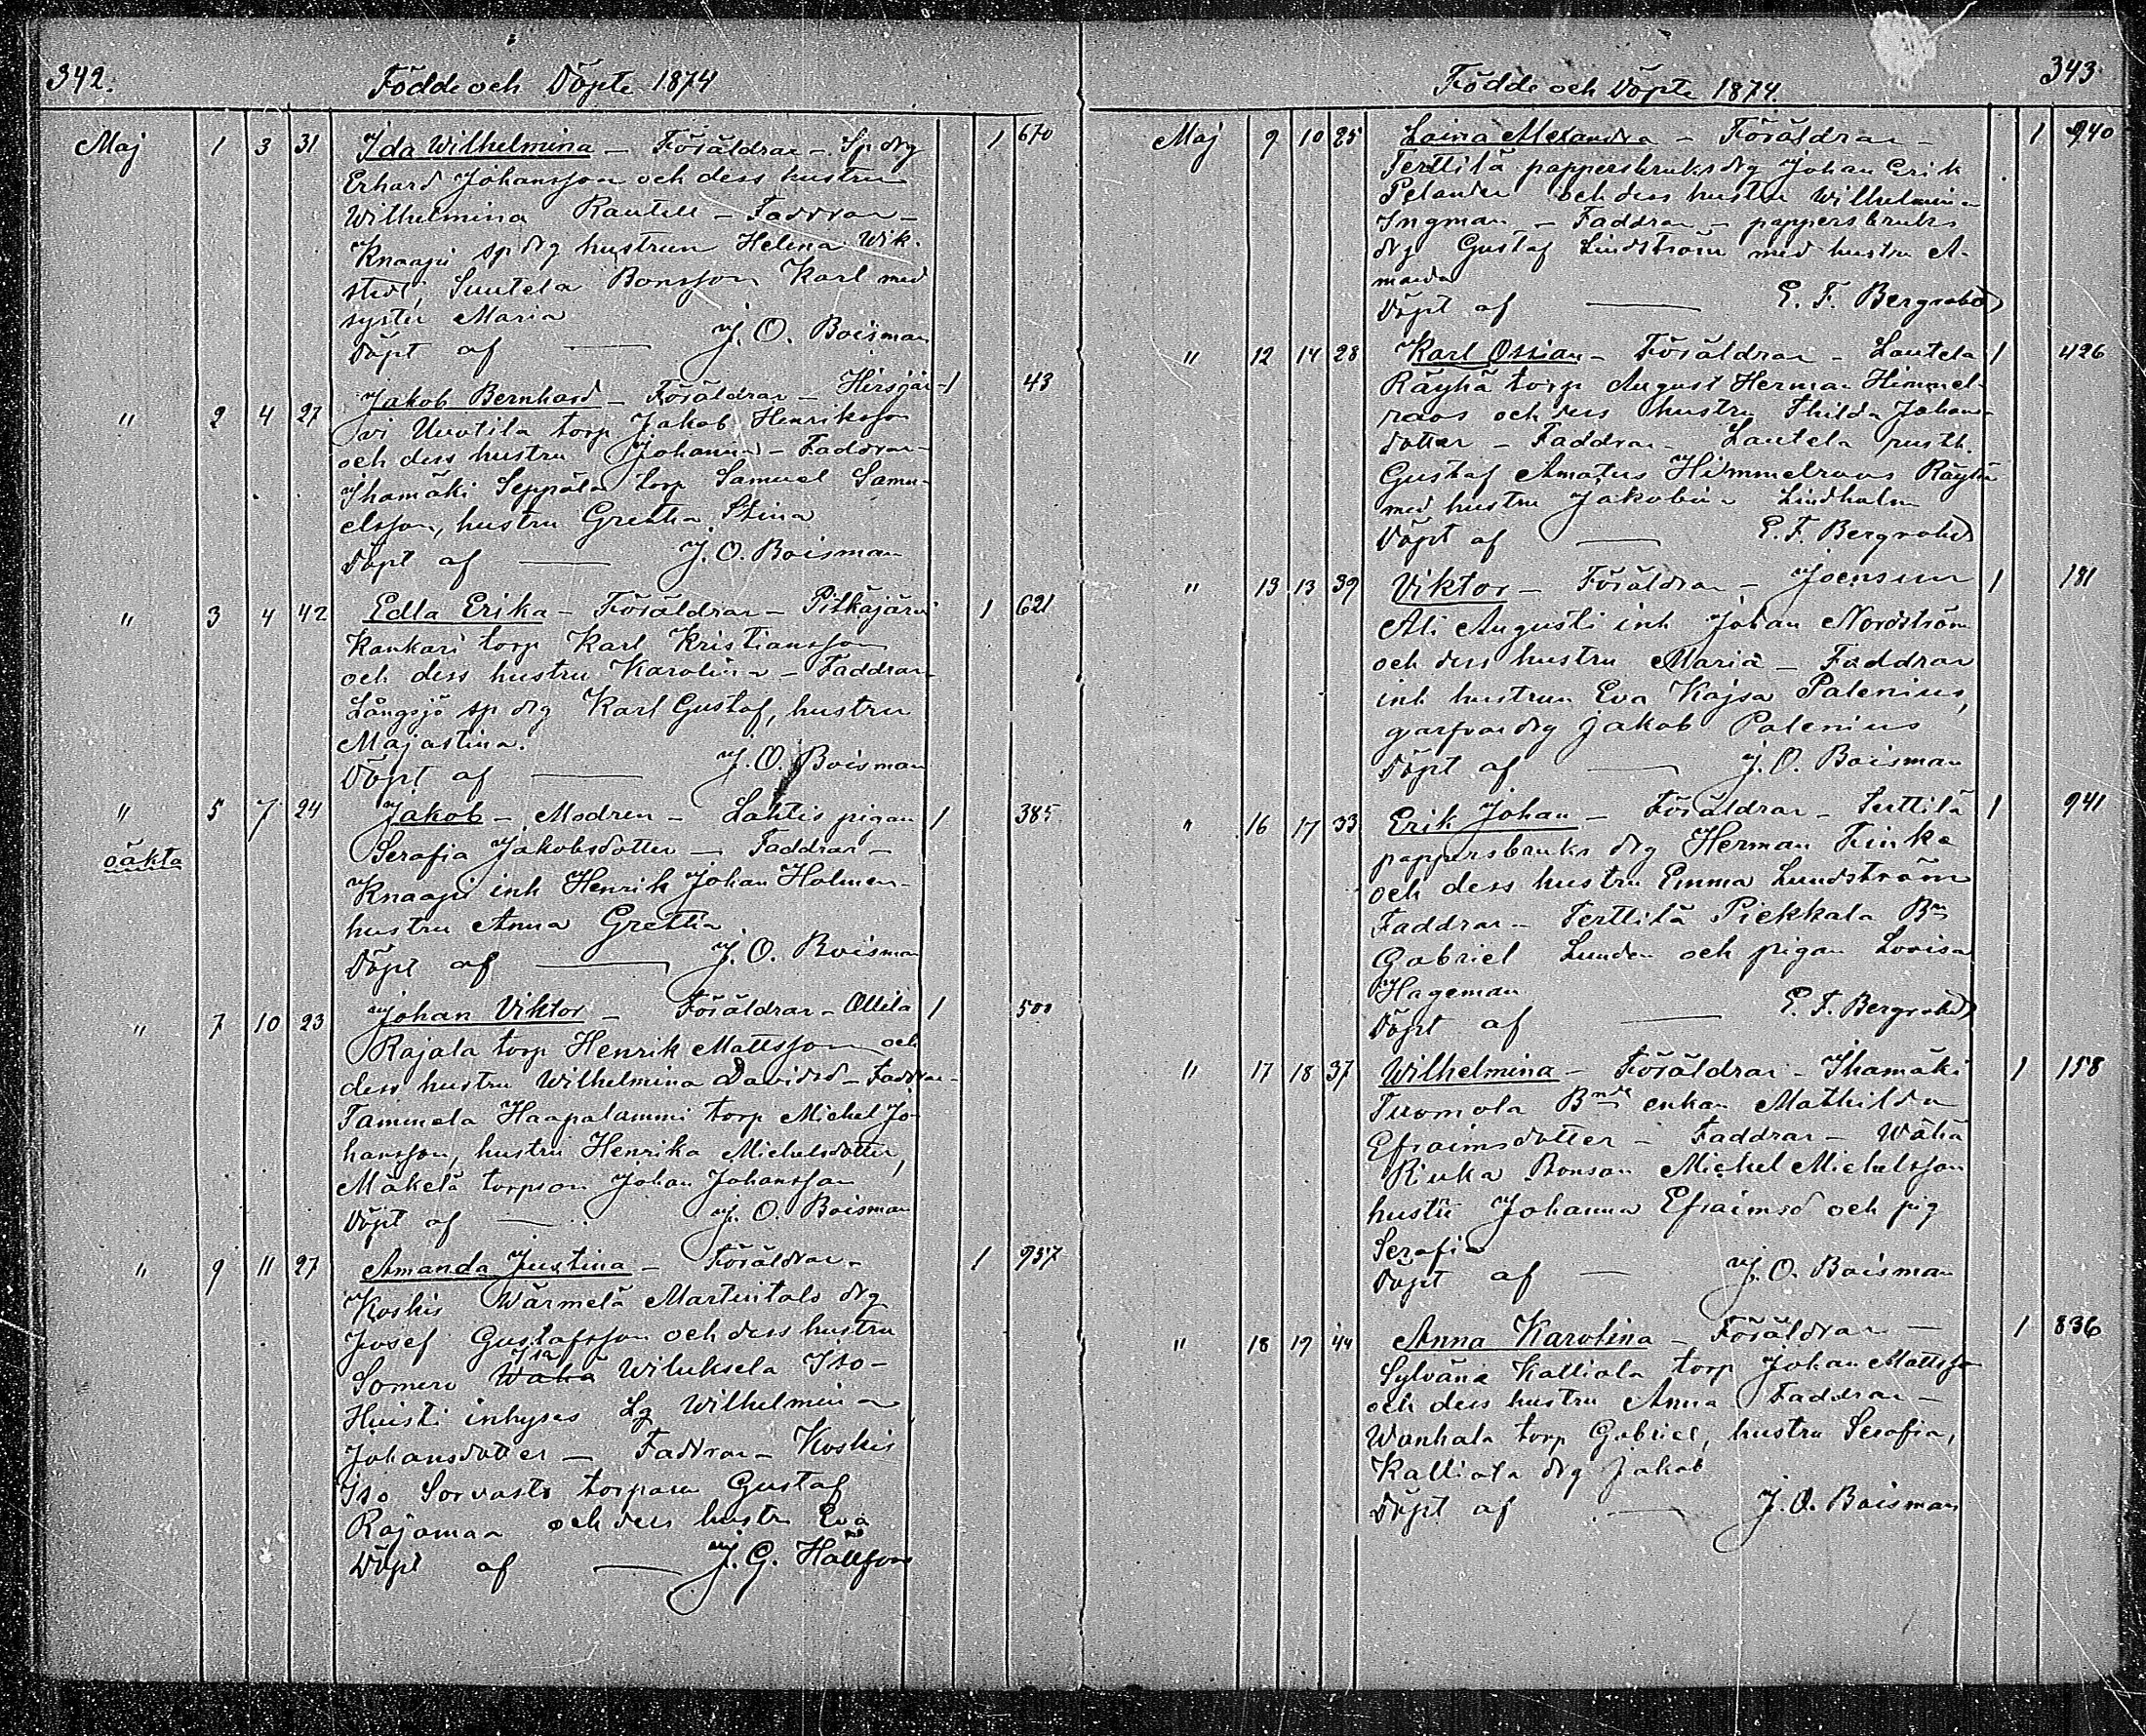 342. Födde och Döpte 1874
Maj 1 3 31 Ida Wilhelmina – Föräldrar – Sp drg 1 670
Erhard Johansson och dess hustru
Wilhelmina Rautell – Faddrar –
Knaapi sp drg hustrun Helena Wik-
stedt, Suutela Bonsson Karl med
syster Maria
Döpt af — J. O. Boisman
" 2 4 27 Jakob Bernhard – Föräldrar – Hirsjär- 1 43
vi Uuotila torp Jakob Henriksson
och dess hustru Johanna – Faddrar –
Ihamäki Seppälä torp Samuel Samu-
elsson, hustru Gretha Stina
Döpt af — J. O. Boisman
" 3 4 42 Edla Erika – Föräldrar – Pitkäjärvi 1 621
Kankari torp Karl Kristiansson
och dess hustru Karolina – Faddrar –
Långsjö sp drg Karl Gustaf, hustru
Majastina.
Döpt af — J. O. Boisman
" 5 7 24 Jakob – Modren – Lahtis pigan 1 385
oäkta Serafia Jakobsdotter – Faddrar –
Knaapi inh Henrik Johan Holmen
hustru Anna Gretha
Döpt af — J. O. Boisman
" 7 10 23 Johan Viktor – Föräldrar – Ollila 1 500
Rajala torp Henrik Mattsson och
dess hustru Wilhelmina Davidsd – Faddrar –
Tammela Haapalammi torp Michel Jo-
hansson, hustru Henrika Michelsdotter,
Mäkelä torpson Johan Johansson
Döpt af — J. O. Boisman
" 9 11 27 Amanda Justina – Föräldrar – 1 957
Koskis Wärmelä Martuitalo drg
Josef Gustafsson och dess hustru
Somero Wähä Wiluksela Iso-
Huisti inhyses Lg Wilhelmina
Johansdotter – Faddrar – Koskis
Iso Sorvasto torparen Gustaf
Rajamaa och dess hustru Eva
Döpt af — J. G. Hallfors
Födde och Döpte 1874. 343
Maj 9 10 25 Laina Alexandra – Föräldrar – 1 940
Terttilä pappersbruks drg Johan Erik
Pelander och dess hustru Wilhelmina
Ingman – Faddrar – pappersbruks
drg Gustaf Lindström med hustru A-
manda
Döpt af — E. F. Bergrahd
" 12 14 28 Karl Ossian – Föräldrar – Lautela 1 426
Räyhä torp August Herman Himmel-
raos och dess hustru Thilda Johans-
dotter – Faddrar – Lautela rusth.
Gustaf Amatus Himmelroos Räyhä
med hustru Jakobina Lindholm
Döpt af — E. F. Bergrahd
" 13 13 39 Viktor – Föräldrar – Joensuu 1 191
Ali Augusti inh Johan Nordström
och dess hustru Maria – Faddrar
inh hustrun Eva Kajsa Palenius,
garfvar drg Jakob Palenius
Döpt af — J. O. Boisman
" 16 17 33 Erik Johan – Föräldrar – Terttilä 1 941
pappersbruks drg Herman Finke
och dess hustru Emma Lundström
Faddrar – Terttilä Piekkala Bn
Gabriel Lunden och pigan Lovisa
Hageman
Döpt af — E. F. Bergrahd
" 17 18 37 Wilhelmina – Föräldrar – Ihamäki 1 158
Tuomola Bnde enkan Mathilda
Efraimsdotter – Faddrar – Wähä
Kiuka Bonson Michel Michelsson
hustru Johanna Efraimsd och pig
Serafia
Döpt af — J. O. Boisman
" 18 19 44 Anna Karolina – Föräldrar – 1 836
Sylvänä Kalliola torp Johan Mattsson
och dess hustru Anna Faddrar –
Wanhala torp Gabriel, hustru Serafia,
Kalliola drg Jakob
Döpt af — J. O. Boisman